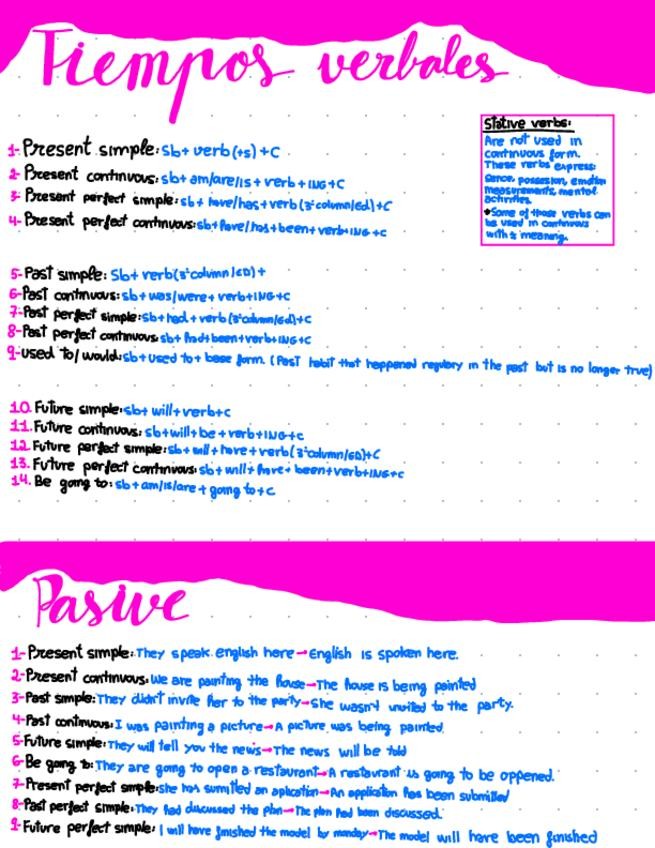 Tiempos verbales
1- Present simple: Sb+ verb (+s) +C
2- Present continuous: sb+ am/are/is + verb + ING + C
3- Present perfect simple: sb + have/has + verb (3ª column/ed) + C
4- Present perfect continuous: sb+have/has+been+verb+ING +C
Stative verbs:
Are not used in
continuous form.
These verbs express:
sence, possesion, emotion
measurements, mental
activities.
*Some of those verbs can
be used in continuous
with ≠ meaning.
5- Past simple: Sb+ verb (3ª column/ED) +
6- Past continuous: sb + was/were + verb+ING+C
7- Past perfect simple: sb+had+verb (3ª column/ed)+C
8- Past perfect continuous: sb+ had+been+verb+ING+C
9- used to/ would: sb+used to+ base form. (Past habit that happened regulary in the past but is no longer true)
10. Future simple: sb+ will+ verb+c
11. Future continuous: sb+will+be +verb+ING+c
12. Future perfect simple: sb+ will + have + verb (3ª column/ED)+C
13. Future perfect continuous: sb + will+ have+ been+verb+ING+C
14. Be going to: sb+am/is/are + going to + C
Pasive
1- Present simple: They speak english here → English is spoken here.
2- Present continuous: We are painting the house → The house is being painted
3- Past simple: They didn't invite her to the party → She wasn't invited to the party.
4- Past continuous: I was painting a picture → A picture was being painted.
5- Future simple: They will tell you the news → The news will be told
6- Be going to: They are going to open a restaurant → A restaurant is going to be oppened.
7- Present perfect simple: She has sumited an aplication → An application has been submitted
8- Past perfect simple: They had discussed the plan → The plan had been discussed.
9- Future perfect simple: I will have finished the model by monday → The model will have been finished